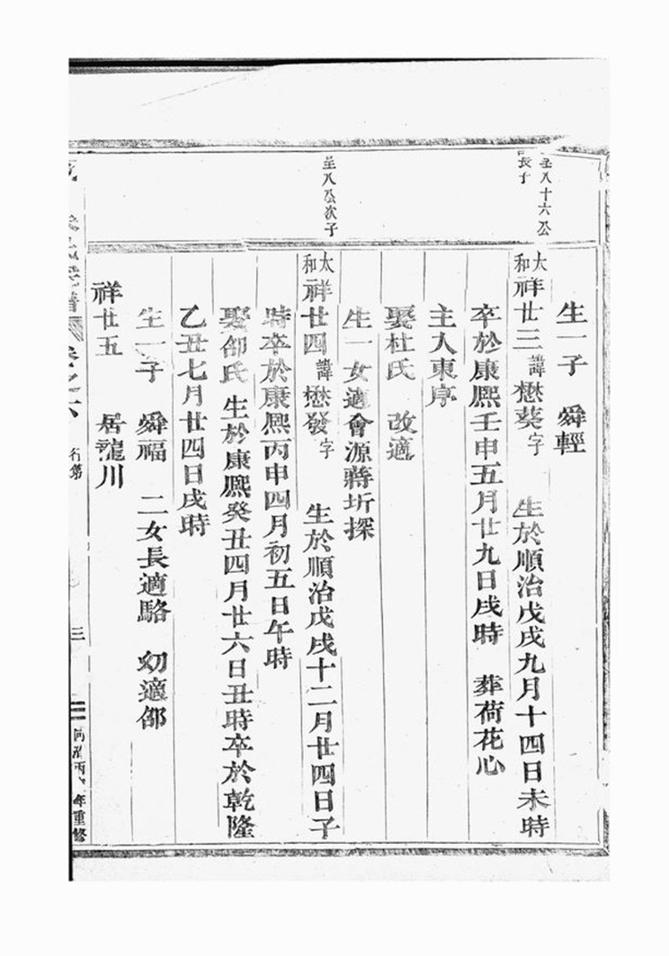 至八十六公
長子
生一子　舜輕
太和祥廿三諱懋葵字　生於順治戊戌九月十四日未時
卒於康熙壬申五月廿九日戌時　葬荷花心
主人東序
娶杜氏　改適
生一女適會源蔣圻探
至八公次子
太和祥廿四諱懋發字　生於順治戊戌十二月廿四日子
時卒於康熙丙申四月初五日午時
娶邰氏　生於康熙癸丑四月廿六日丑時卒於乾隆
乙丑七月廿四日戌時
生一子　舜福　二女長適駱　幼適邰
祥廿五　居龍川
行第
三
年重修